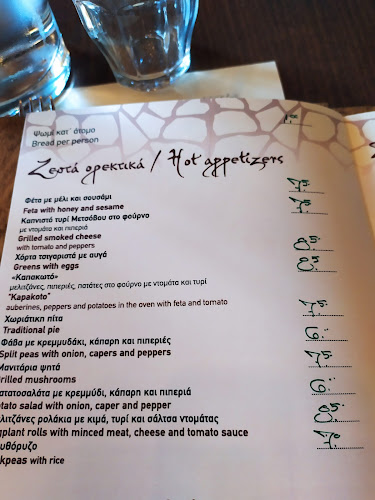 Ψωμί κατ' άτομο
Bread per person
Ζεστά ορεκτικά / Hot appetizers
Φέτα με μέλι και σουσάμι
Feta with honey and sesame
Καπνιστό τυρί Μετσόβου στο φούρνο
με ντομάτα και πιπεριά
Grilled smoked cheese
with tomato and peppers
Χόρτα τσιγαριστά με αυγά
Greens with eggs
«Καπακωτό»
μελιτζάνες, πιπεριές, πατάτες στο φούρνο με ντομάτα και τυρί
"Kapakoto"
auberines, peppers and potatoes in the oven with feta and tomato
Χωριάτικη πίτα
Traditional pie
Φάβα με κρεμμυδάκι, κάπαρη και πιπεριές
Split peas with onion, capers and peppers
Μανιτάρια ψητά
rilled mushrooms
ατατοσαλάτα με κρεμμύδι, κάπαρη και πιπεριά
tato salad with onion, caper and pepper
λιτζάνες ρολάκια με κιμά, τυρί και σάλτσα ντομάτας
gplant rolls with minced meat, cheese and tomato sauce
υθόρυζο
kpeas with rice